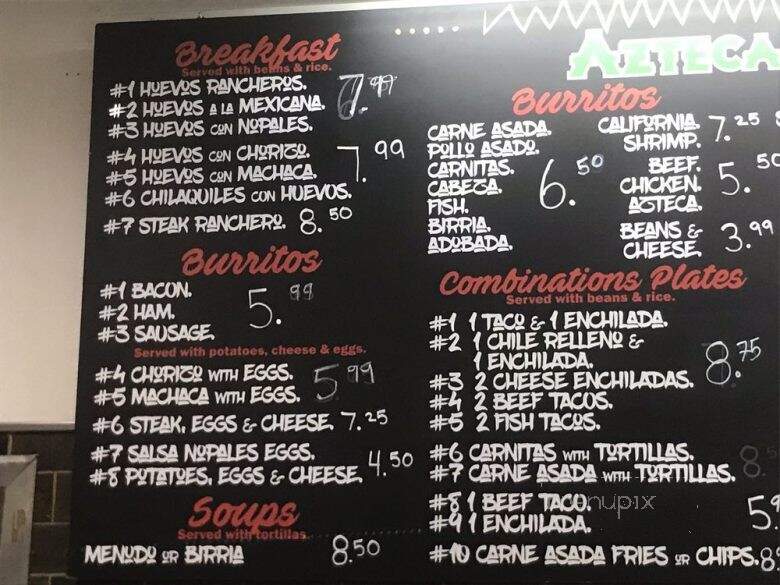 Breakfast
Served with beans & rice.
#1 HUEVOS RANCHEROS.
#2 HUEVOS A LA MEXICANA.
#3 HUEVOS CON NOPALES.
#4 HUEVOS CON CHORIZO.
#5 HUEVOS CON MACHACA. 7.99
#6 CHILAQUILES CON HUEVOS.
#7 STEAK RANCHERO. 8.50
Burritos
#1 BACON.
#2 HAM. 5.99
#3 SAUSAGE.
Served with potatoes, cheese & eggs.
#4 CHORIZO WITH EGGS. 5.99
#5 MACHACA WITH EGGS.
#6 STEAK, EGGS & CHEESE. 7.25
#7 SALSA NOPALES EGGS.
#8 POTATOES, EGGS & CHEESE. 4.50
Soups
Served with tortillas.
MENUDO OR BIRRIA 8.50
AZTECA
Burritos
CARNE ASADA.
POLLO ASADO.
CARNITAS.
CABEZA. 6.50
FISH.
BIRRIA.
ADOBADA.
CALIFORNIA. 7.25
SHRIMP.
BEEF.
CHICKEN. 5.50
AZTECA.
BEANS & 3.99
CHEESE.
Combinations Plates
Served with beans & rice.
#1 1 TACO & 1 ENCHILADA.
#2 1 CHILE RELLENO &
1 ENCHILADA. 8.75
#3 2 CHEESE ENCHILADAS.
#4 2 BEEF TACOS.
#5 2 FISH TACOS.
#6 CARNITAS WITH TORTILLAS.
#7 CARNE ASADA WITH TORTILLAS.
#8 1 BEEF TACO.
#9 1 ENCHILADA.
#10 CARNE ASADA FRIES OR CHIPS.
menupix